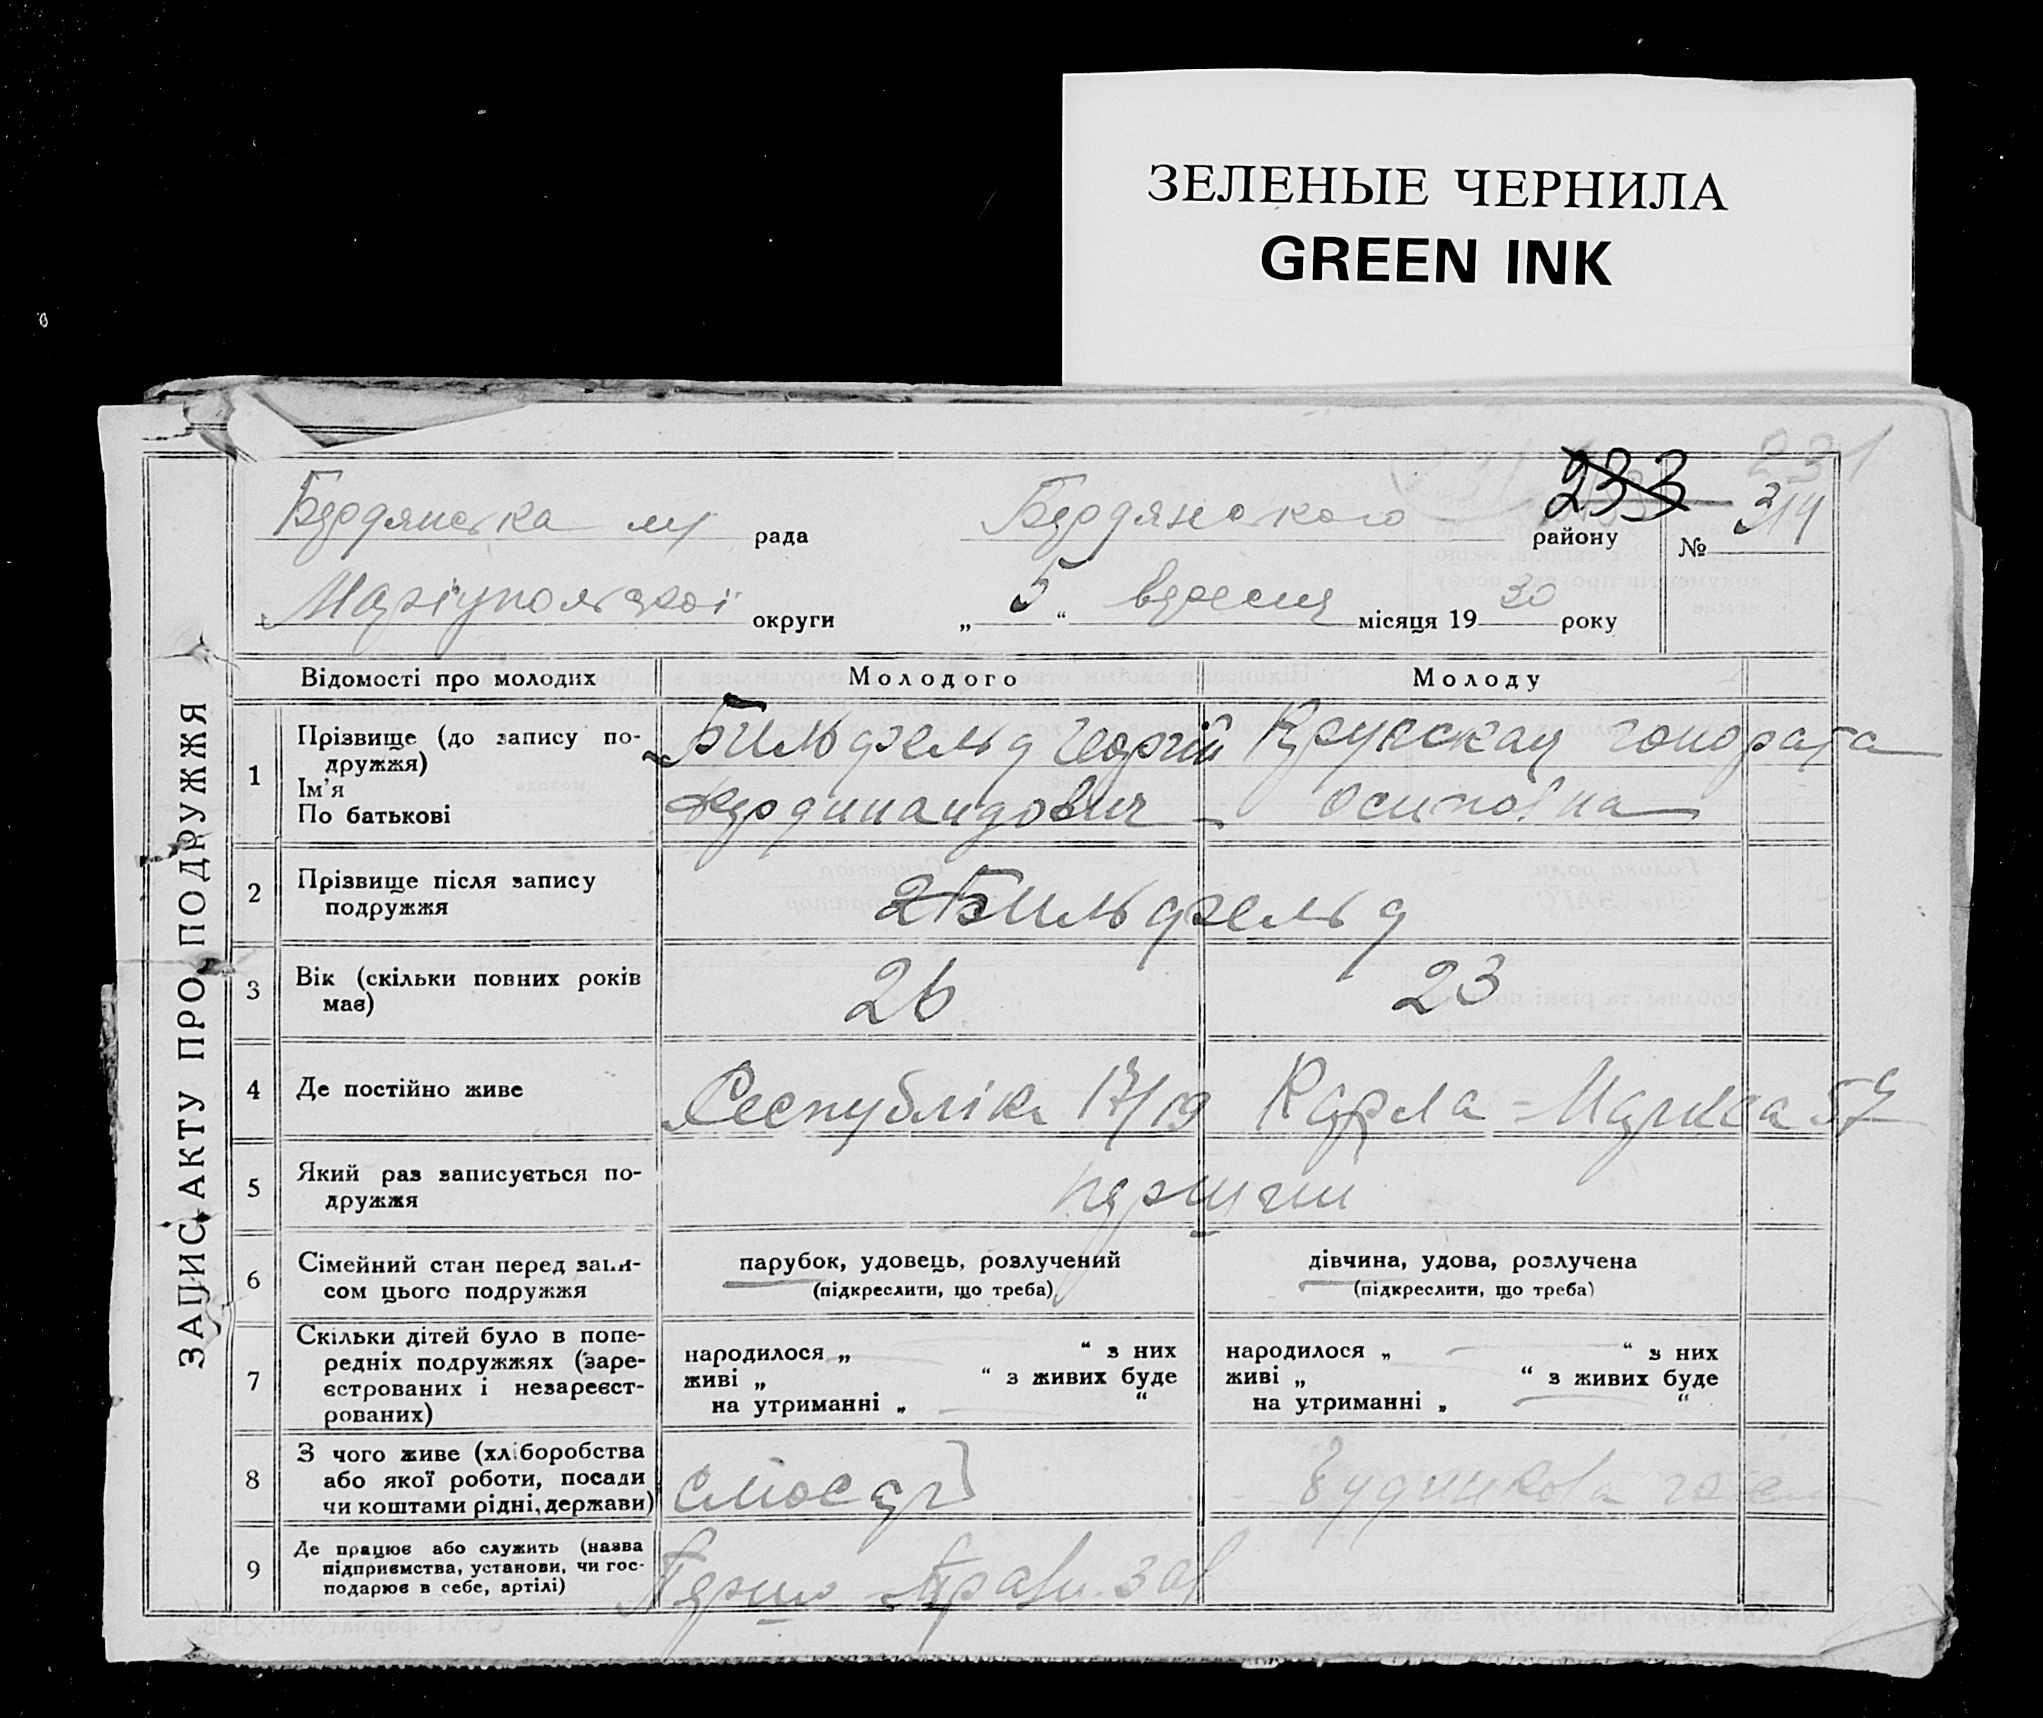 ЗЕЛЕНЫЕ ЧЕРНИЛА
GREEN INK
231
233 314
Бердянська м рада Бердянського району №
Маріупольської округи „ 5 “ вересня місяця 19 30 року
ЗАПИС АКТУ ПРО ПОДРУЖЖЯ
Відомості про молодих Молодого Молоду
1 Прізвище (до запису по-
дружжя)
Ім’я
По батькові
Бильдфельд Георгій
Фердинандович
Осиповна
2 Прізвище після запису
подружжя
Бильдфельд
3 Вік (скільки повних років
має)
26 23
4 Де постійно живе Республік 17/19 Карла-Маркса 57
5 Який раз записується по-
дружжя
перший
6 Сімейний стан перед запи-
сом цього подружжя
парубок, удовець, розлучений
(підкреслити, що треба)
дівчина, удова, розлучена
(підкреслити, що треба)
7 Скільки дітей було в попе-
редніх подружжях (заре-
єстрованих і незареєст-
рованих)
народилося „ “ з них
живі „ “ з живих буде
на утриманні „ “
народилося „ “ з них
живі „ “ з живих буде
на утриманні „ “
8 З чого живе (хліборобства
або якої роботи, посади
чи коштами рідні, держави)
слюсар
9 Де працює або служить (назва
підприємства, установи, чи гос-
подарює в себе, артілі)
Першо-Травн. зав